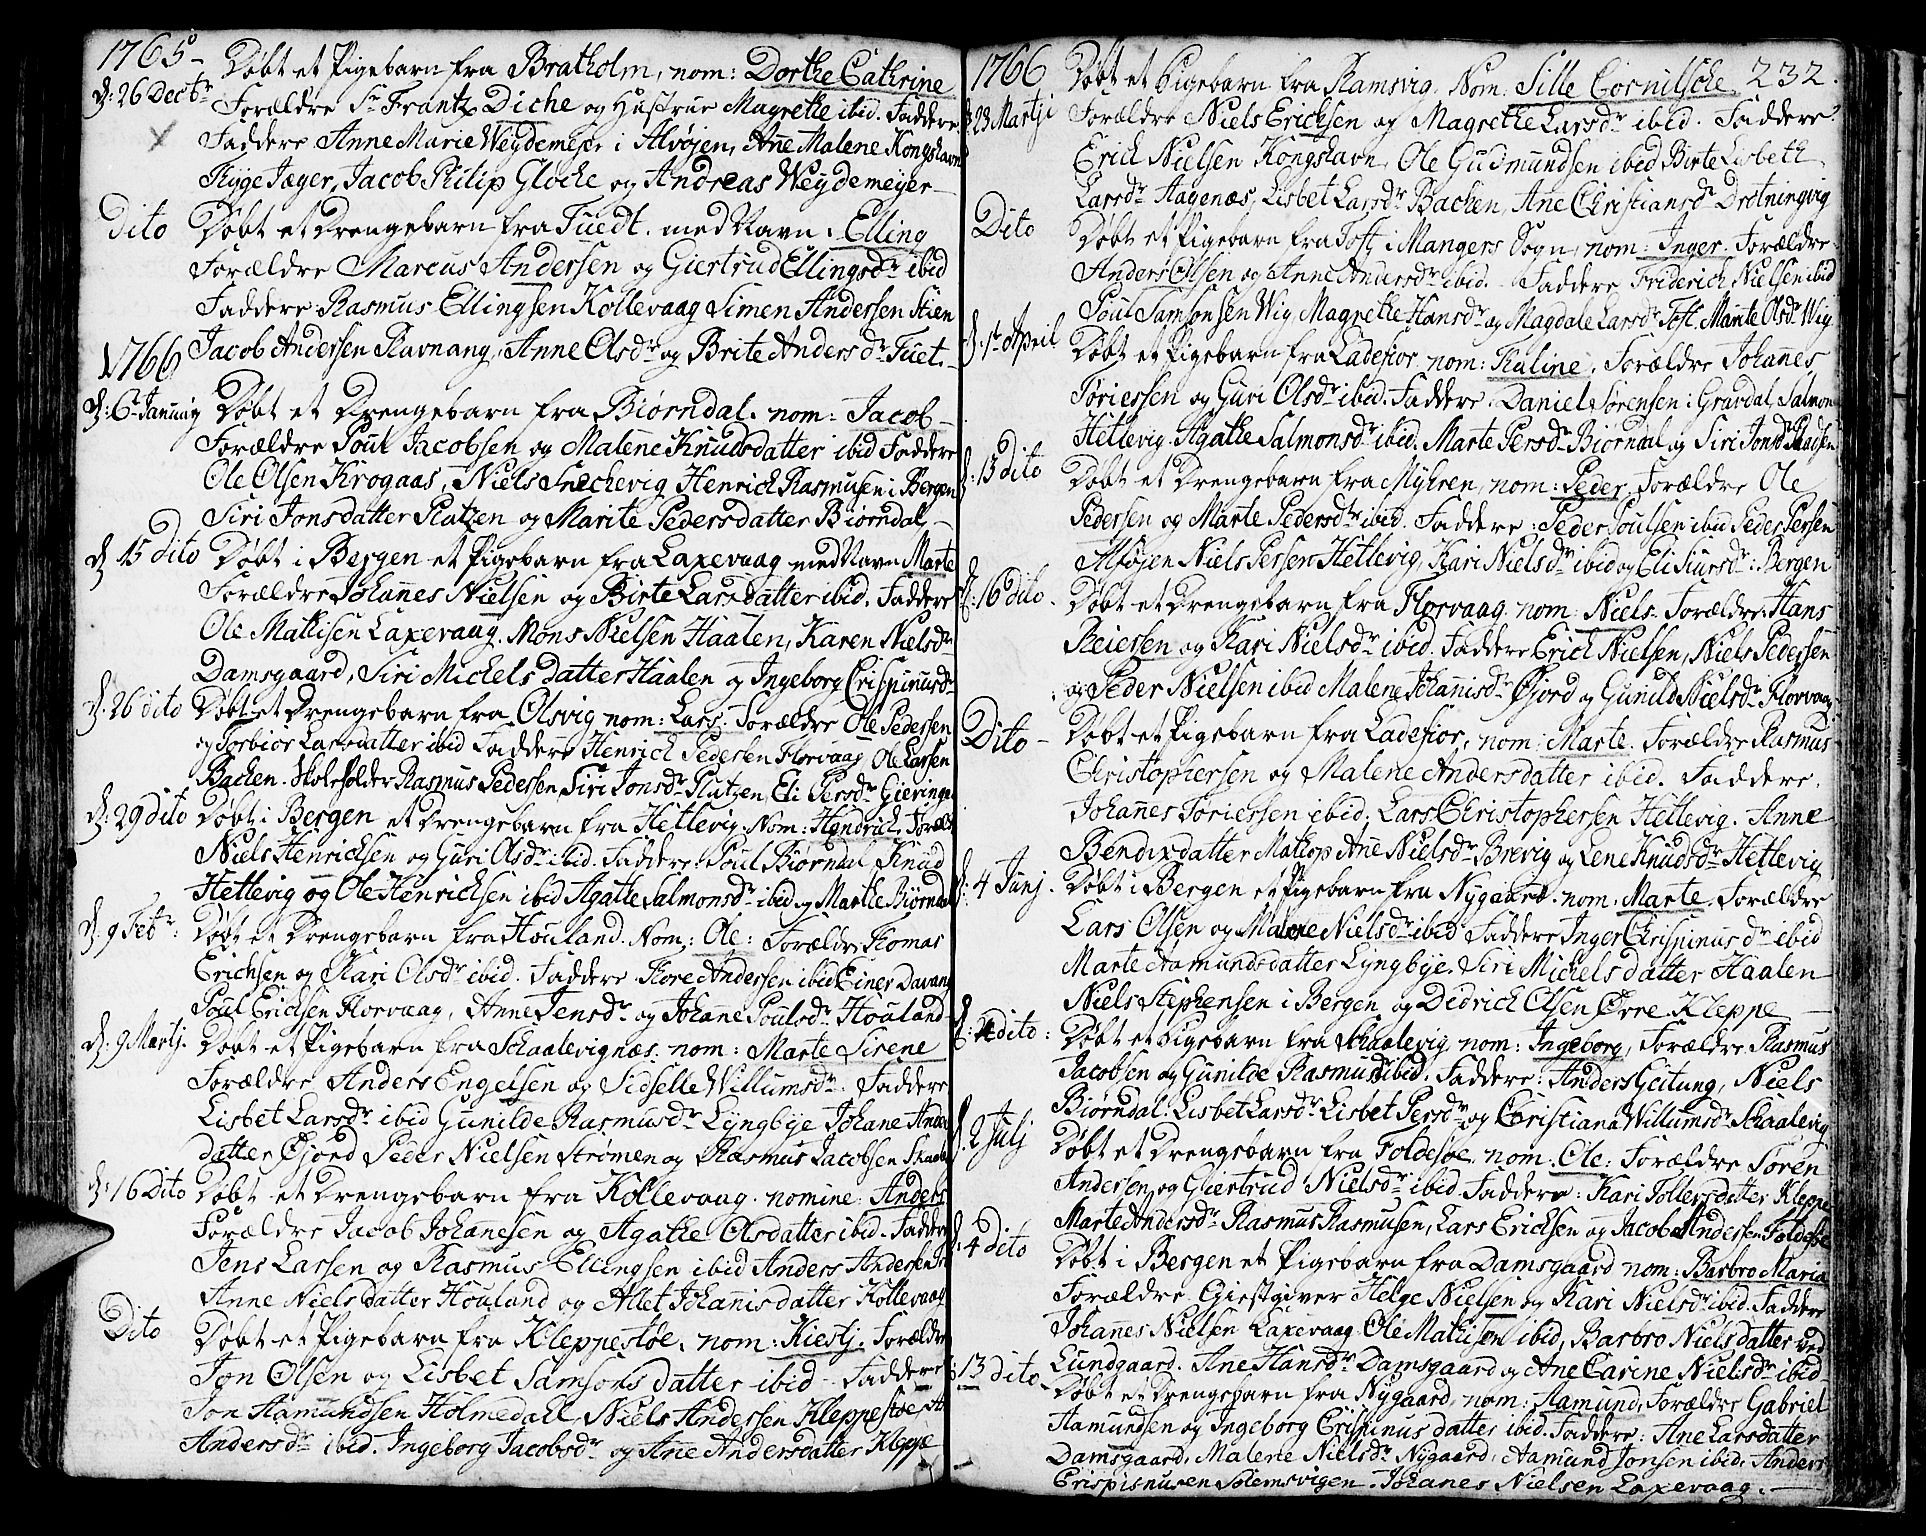 1765
d: 26 Decbr Døbt et Pigebarn fra Bratholm, nom: Dorthe Cathrine
Forældre Sr Frantz Diche og Hustrue Magrethe ibid. Faddere
Faddere Anne Marie Weydemejer i Alvøjen, Ane Malene Kongshavn
Thyge Jæger, Jacob Philip Gloche og Andreas Weydemeyer
Dito Døbt et Drengebarn fra Tuedt. med Navn: Elling
Forældre Marcus Andersen og Giertrud Ellingsdr ibid
Faddere: Rasmus Ellingsen Kollevaag Simen Andersen Stien
Jacob Andersen Ravnang, Anne Olsdr og Brite Andersdr Tuet.
1766
d: 6 Januarij Døbt et Drengebarn fra Biørndal. nom: Jacob
Forældre Poul Jacobsen og Malene Knudsdatter ibid Faddere
Ole Olsen Krogaas, Niels Snechevig Henrich Rasmusen i Bergen
Siri Jonsdatter Platzen og Marite Pedersdatter Biørndal
d 15 dito Døbt i Bergen et Pigebarn fra Laxevaag med Navn Marte
Forældre Johannes Nielsen og Birte Larsdatter ibid. Faddere
Ole Mathisen Laxevaag. Mons Nielsen Haalen, Karen Nielsdr
Damsgaard, Siri Michelsdatter Haalen og Ingeborg Crispinusdr
d. 26 dito Døbt et Drengebarn fra Olsvig nom: Lars. Forældre Ole Pedersen
og Torbiør Larsdatter ibid Faddere Henrich Pedersen Florvaag Ole Larsen
Bachen. Skoleholder Rasmus Pedersen, Siri Jonsdr Platzen, Eli Persdr Gieringen
d: 29 dito Døbt i Bergen et Drengebarn fra Hetlevig. Nom: Hendrich, Foræld
Niels Henrichsen og Guri Olsdr ibid. Faddere: Poul Biørndal Knud
Hetlevig og Ole Henrichsen ibid Agathe Salmonsdr ibid og Marthe Biørndal
d. 9 Febr: Døbt et Drengebarn fra Houland. Nom: Ole: Forældre Thomas
Erichsen og Kari Olsdr ibid. Faddere. Thore Andersen ibid Einer Davang
Poul Erichsen Florvaag, Anne Jensdr og Johane Poulsdr Houland
d: 9 Martij. Døbt et Pigebarn fra Schaalevignæs. nom: Marte Sirene
Forældre Anders Engelsen og Sidselle Willumsdr. Faddere
Lisbet Larsdr ibid Gunilde Rasmusdr Lyngbye Johane Anders
datter Øjord Peder Nielsen Strømen og Rasmus Jacobsen Skaale
d: 16 Dito Døbt et Drengebarn fra Kollevaag. nomine: Anders
Forældre Jacob Johannesen og Agathe Olsdatter ibid. Faddere
Jens Larsen og Rasmus Ellingsen ibid Anders Andersen
Anne Nielsdatter Houland og Alet Johanisdatter Kollevaag
Dito Døbt et Pigebarn fra Kleppestøe. nom: Kiestj. Forældre
Jon Olsen og Lisbet Samsonsdatter ibid. Faddere
Jon Aamundsen Holmedall, Niels Andersen Kleppestøe
Andersdr ibid. Ingeborg Jacobsdr og Ane Andersdatter Kleppe
1766 232.
d 23 Martji Døbt et Pigebarn fra Ramsvig. Nom: Sille Cornilsche
Forældre Niels Ericksen og Magrethe Larsdr ibid. Faddere
Erich Nielsen Kongshavn, Ole Gudmundsen ibid Birte Lisbeth
Larsdr Hagenæs, Lisbet Larsdr Bachen, Ane Christiansdr Drotningvig
Dito Døbt et Pigebarn fra Toft i Mangers Sogn, nom: Inger. Forældre
Anders Olsen og Anne Andersdr ibid. Faddere Friderich Nielsen ibid
Poul Samsonsen Wig, Magrethe Hansdr og Magdale Larsdr Toft. Marite Olsdr Wig
d: 1st April Døbt et Pigebarn fra Ladefior, nom: Kaline, Forældre Johannes
Toriessen og Guri Olsdr ibid. Faddere. Daniel Sørensen i Gravdal, Salmon
Hetlevig. Agathe Salmonsdr ibid. Marte Persdr Biørndal og Siri Jonsdr
d: 13 dito Døbt et Drengebarn fra Myhren, nom: Peder, Forældre Ole
Pedersen og Marte Pedersdr ibid. Faddere: Peder Poulsen ibid Peder Persen
Alføjen Niels Persen Hetlevig, Kari Nielsdr ibid og Eli Siursdr i Bergen
d: 16 dito. Døbt et Drengebarn fra Florvaag. nom: Niels. Forældre Hans
Reiersen og Kari Nielsdr ibid. Faddere Erich Nielsen, Niels Pedersen
og Peder Nielsen ibid Malene Johanisdr Øjord og Gunild Nielsdr Florvaag
Dito Døbt et Pigebarn fra Ladefior, nom: Marte. Forældre Rasmus
Christophersen og Malene Andersdatter ibid. Faddere.
Johannes Toriessen ibid. Lars Christophersen Hetlevig. Anne
Bendixdatter Mathop Ane Nielsdr Brevig og Lene Knudsdr Hetlevig
d: 4 Junj. Døbt i Bergen et Pigebarn fra Nygaard. nom: Marte. Forældre
Lars Olsen og Malene Nielsdr ibid Faddere Inger Chrispinusdr ibid
Marte Aamundsdatter Lyngbye. Siri Michelsdatter Haalen
Niels Stephensen i Bergen og Didrich Olsen Øvre Kleppe
dito: Døbt et Pigebarn fra Schaalevig nom: Ingeborg, Forældre Rasmus
Jacobsen og Gunilde Rasmusd ibid. Faddere: Anders Geitung, Niels
Biørndal: Lisbet Larsdr Lisbet Persdr og Christiana Willumsdr Schaalevig
d. 2 Julj Døbt et Drengebarn fra Foldesøe, nom: Ole: Forældre Søren
Andersen og Giertrud Nielsdr ibid. Faddere: Kari Tollersdatter Kleppe
Marte Andersdr Rasmus Rasmusen, Lars Erichsen og Jacob Andersen Foldesøe
d. 4 dito Døbt i Bergen et Pigebarn fra Damsgaard nom: Barbro Maria
Forældre Giestgiver Helge Nielsen og Kari Nielsdr ibid. Faddere
Johannes Nielsen Laxevaag. Ole Mathisen ibid, Barbro Nielsdatter ved
Lundgaard. Ane Hansdr Damsgaard og Ane Carine Nielsdr ibid
13 dito Døbt et Drengebarn fra Nygaard, nom: Aamund, Forældre Gabriel
Aamundsen og Ingeborg Crispinusdatter ibid. Faddere: Ane Larsdatter
Damsgaard, Malene Nielsdr Nygaard, Aamund Jonsen ibid. Anders
Crispinusen Solemsvigen. Johanes Nielsen Laxevaag.